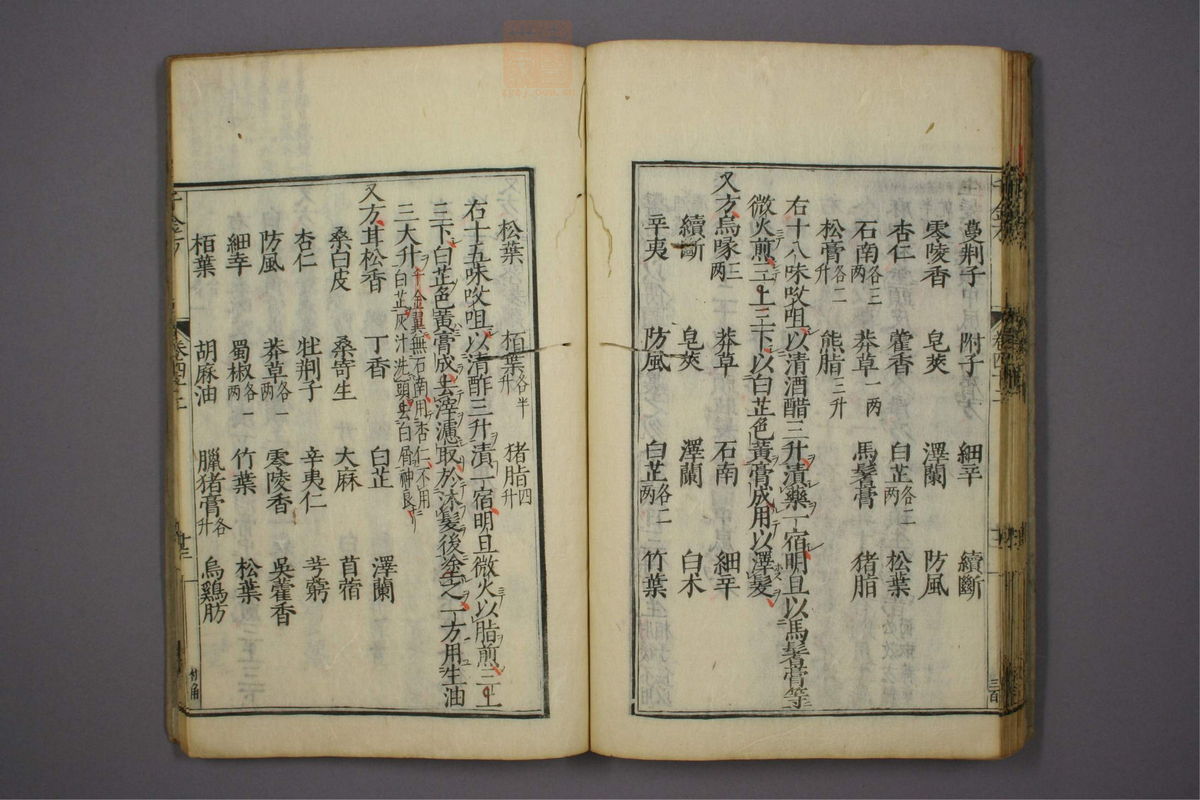 蔓荆子 附子 細辛 續斷
零陵香 皂莢 澤蘭 防風
杏仁 藿香 白芷各二兩 松葉
石南各三兩 莽草一兩 馬鬐膏 猪脂
松膏各二升 熊脂三升
右十八味㕮咀以清酒醋三升漬藥一宿明旦以馬鬐膏等
微火煎三上三下以白芷色黃膏成用以澤髮
又方烏啄三兩 莽草 石南 細辛
續斷 皂莢 澤蘭 白术
辛夷 防風 白芷各二兩 竹葉
松葉 栢葉各半升 猪脂四升
右十五味㕮咀以清酢三升漬一宿明旦微火以脂煎三上
三下白芷色黃膏成去滓濾取於沐髮後塗之一方用生油
三大升千金翼無石南用杏仁不用白芷灰汁洗頭去白屑神良
又方耳松香 丁香 白芷 澤蘭
桑白皮 桑寄生 大麻 苜蓿
杏仁 牡荆子 辛夷仁 芎藭
防風 莽草各一兩 零陵香 吳藿香
細辛 蜀椒各一兩 竹葉 松葉
栢葉 胡麻油 臘猪膏各升 烏鷄肪
千金方
卷四十二